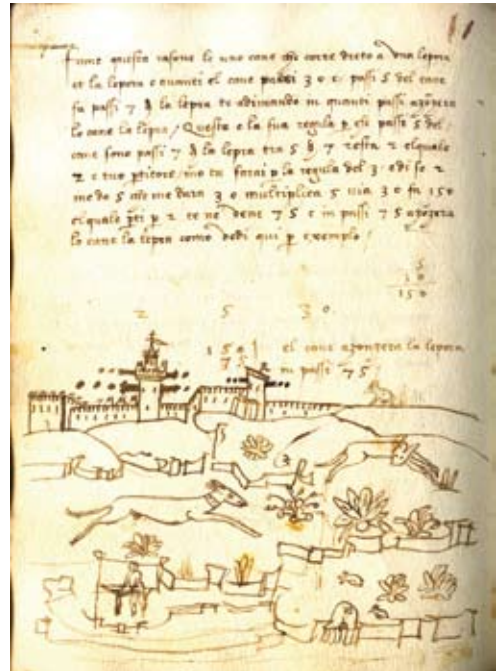 Fame questa rasone le uno cane che corre dreto a una lepora
et la lepora e avanti el cane passi 30 e passi 5 del cane
fa passi 7 de la lepora te adimando in quanti passi azonzera
lo cane la lepra / Questa e la sua regula p che passi 5 del
cane sono passi 7 de la lepra tra 5 & 7 resta 2 el quale
2 e tuo partitore mo tu farai p la regula del 3 e di se 2
me da 5 che me dara 30 multiplica 5 via 30 fa 150
el quale parti p 2 te ne vene 75 e in passi 75 azonzera
lo cane la lepra como vedi qui p exemplo /
5
30
150
2 5 30
150 el cane azonzera la lepora
75 in passi 75